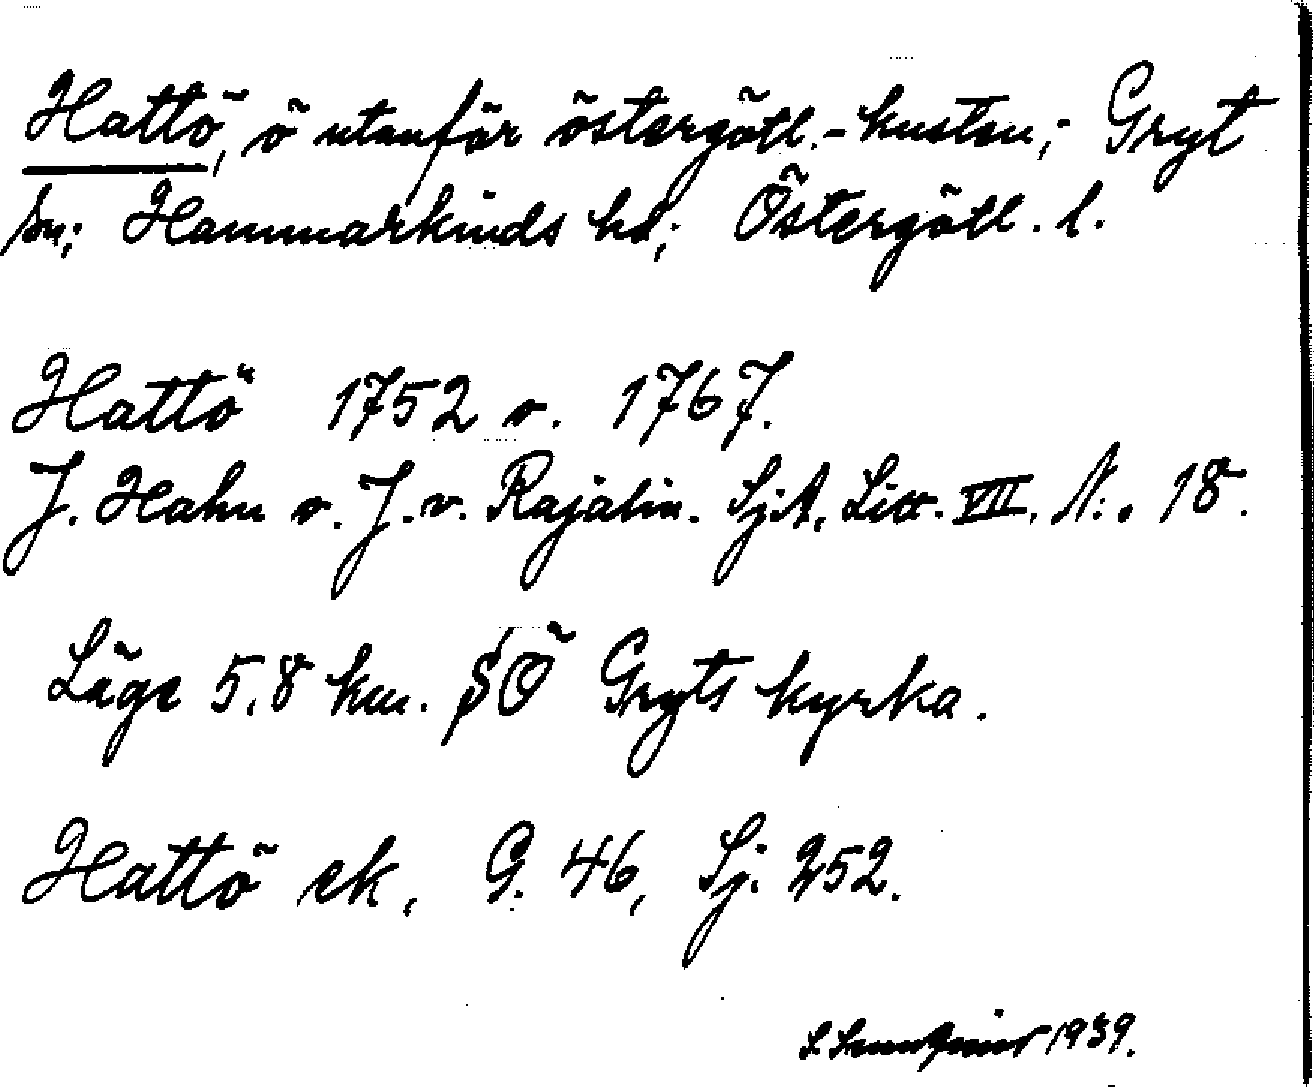 Hattö, ö utanför östergötl.-kusten; Gryt
sn; Hammarkinds hd; Östergötl. l.
Hattö 1752 o. 1767.
J. Hahn o. J. v. Rajalin. Sj.A. Litt. VII. N:o 18.
Läge 5,8 km. SÖ Gryts kyrka.
Hattö ek, G. 46, Sj. 252.
1939.